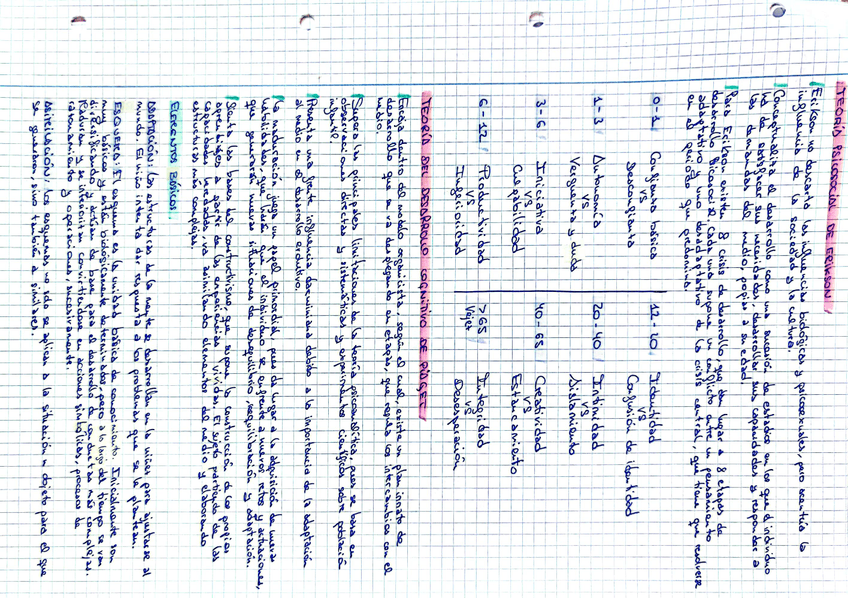 TEORÍA PSICOSOCIAL DE ERIKSON /
Erikson no descarta las influencias biológicas y psicosexuales, pero acentúa la
influencia de la sociedad y la cultura.
Conceptualiza el desarrollo como una sucesión de estadios en los que el individuo
ha de satisfacer sus necesidades, desarrollar sus capacidades y responder a
las demandas del medio, propias a su edad.
Para Erikson existen 8 crisis de desarrollo, que dan lugar a 8 etapas de
desarrollo psicosocial. Cada una supone un conflicto entre un pensamiento
adaptativo y uno desadaptativo de la crisis central, que tiene que resolverse
en el período que predomina.
0-1 / Confianza básica
vs
Desconfianza
12-20 / Identidad
vs
Confusión de identidad
1-3 / Autonomía
vs
Vergüenza y duda
20-40 / Intimidad
vs
Aislamiento
3-6 / Iniciativa
vs
Culpabilidad
40-65 / Creatividad
vs
Estancamiento
6-12 / Productividad
vs
Inferioridad
>65 / Integridad
Vejet vs
Desesperación
TEORÍA DEL DESARROLLO COGNITIVO DE PIAGET /
Encaja dentro del modelo organicista, según el cual existe un plan innato de
desarrollo que se va desplegando en etapas, que regula los intercambios con el
medio.
Supera las principales limitaciones de la teoría psicoanalítica, pues se basa en
observaciones directas y sistemáticas y experimentos científicos sobre población
infantil.
Presenta una fuerte influencia darwiniana debido a la importancia de la adaptación
al medio en el desarrollo evolutivo.
La maduración juega un papel primordial, pues da lugar a la adquisición de nuevas
habilidades, que harán que el individuo se enfrente a nuevos retos y actuaciones,
que generarán nuevas situaciones de desequilibrio, reequilibración y adaptación.
Sienta las bases del constructivismo que supone la construcción de los propios
aprendizajes a partir de las experiencias vividas. El sujeto partiendo de las
capacidades heredadas, va asimilando elementos del medio y elaborando
estructuras más complejas.
ELEMENTOS BÁSICOS.
ADAPTACIÓN: Las estructuras de la mente se desarrollan en la niñez para ajustarse al
mundo. El niño intenta dar respuesta a los problemas que se le plantean.
ESQUEMA: El esquema es la unidad básica de conocimiento. Inicialmente son
muy básicos y están biológicamente determinados, pero a lo largo del tiempo se van
diversificando y actúan de base para el desarrollo de conductas más complejas.
Maduran y se interiorizan convirtiéndose en acciones simbólicas, procesos de
razonamiento y operaciones, sucesivamente.
ASIMILACIÓN: Los esquemas no sólo se aplican a la situación u objeto para el que
se generaron, sino también a similares.